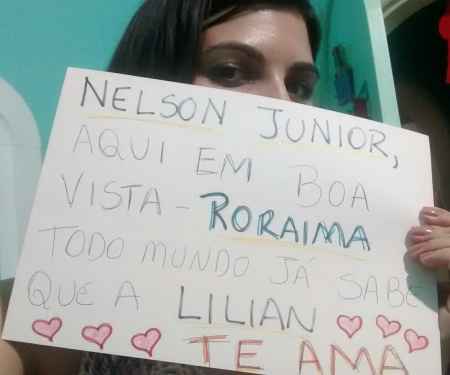 NELSON JUNIOR,
AQUI EM BOA
VISTA - RORAIMA
TODO MUNDO JÁ SABE
QUE A LILIAN
TE AMA